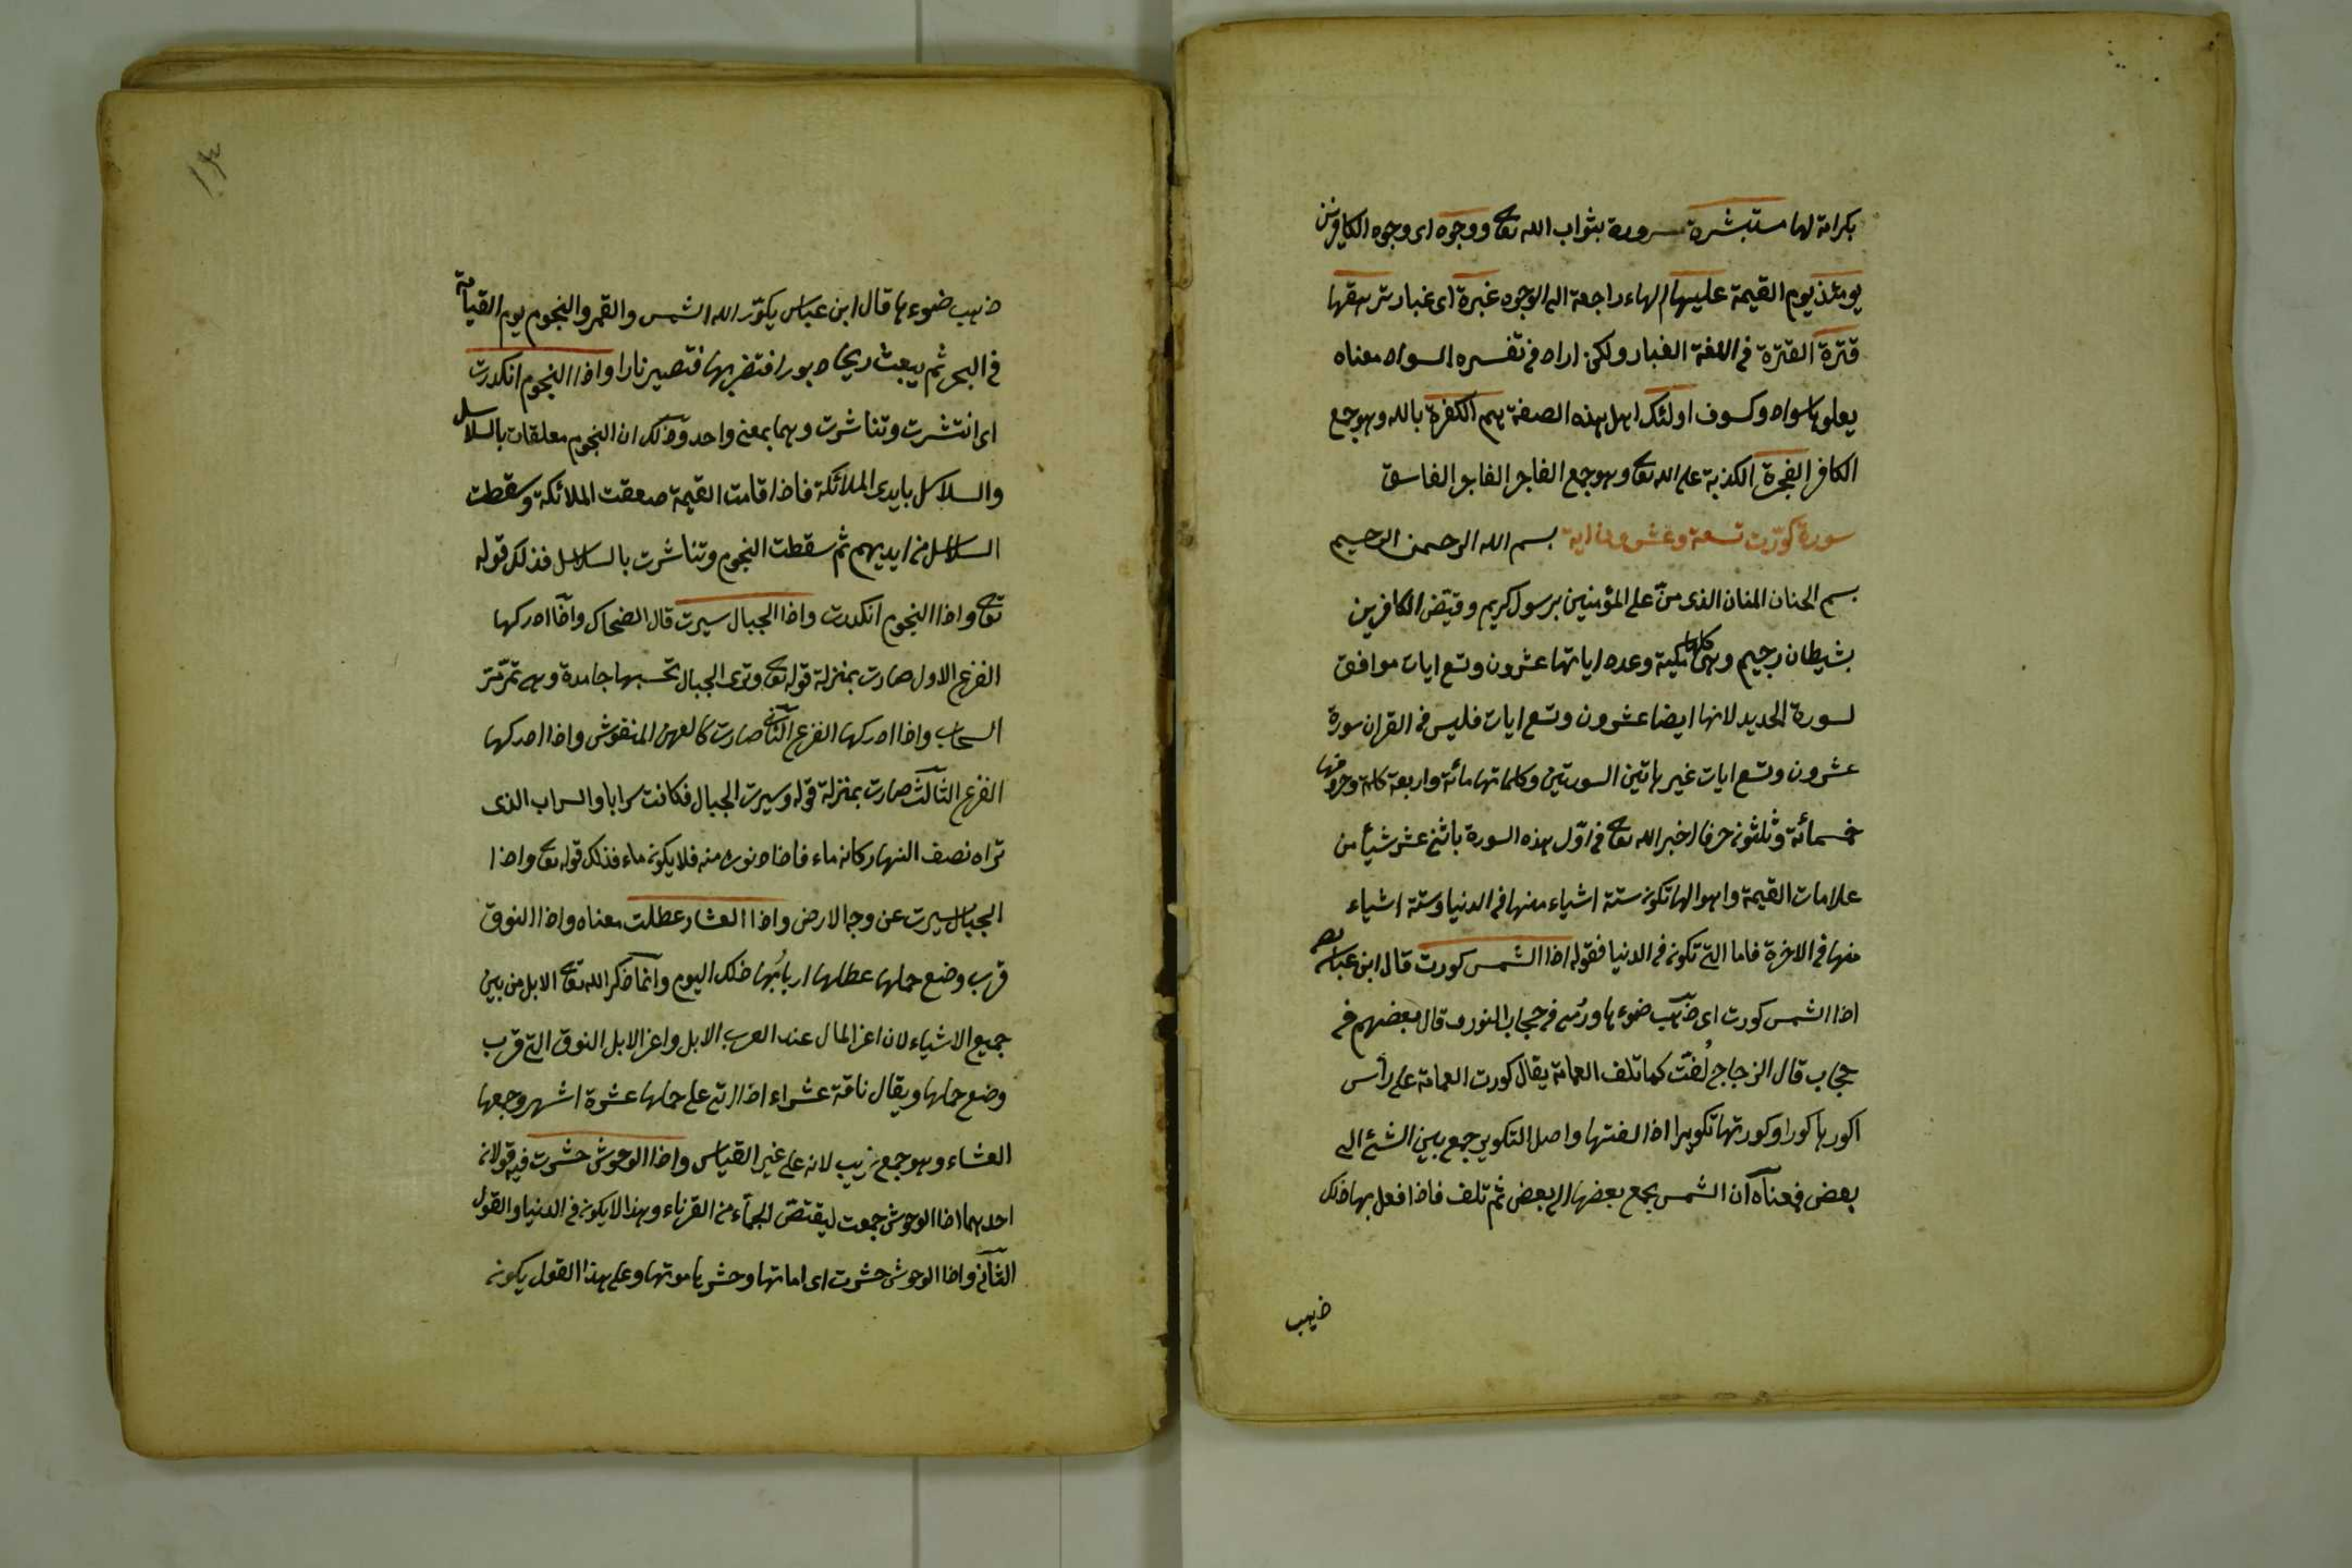 بكرامة لها مستبشرة مسرورة بثواب الله تعالى ووجوه اى وجوه الكافرين
يومئذ يوم القيمة عليها الهاء راجعة الى الوجوه غبرة اى غبار ترهقها
قترة القترة فى اللغة الغبار ولكن اراد فى تفسيره السواد معناه
يعلوها سواد وكسوف اولئك اهل هذه الصفة هم الكفرة بالله وهو جمع
الكافر الفجرة الكذبة على الله تعالى وهو جمع الفاجر الفابر الفاسق
سورة كورت تسعة وعشرون اية بسم الله الرحمن الرحيم
بسم الحنان المنان الذى منّ على المؤمنين برسول كريم وقيّض الكافرين
بشيطان رجيم وهى كلها مكية وعدد اياتها عشرون وتسع ايات موافق
لسورة الحديد لانها ايضا عشرون وتسع ايات فليس فى القران سورة
عشرون وتسع ايات غير هاتين السورتين وكلماتها مائة واربعة كلمة وحروفها
خمسمائة وثلثون حرفا اخبر الله تعالى فى اوّل هذه السورة باثنى عشر شيأ من
علامات القيمة واهوالها تكون ستة اشياء منها فى الدنيا وستة اشياء
منها فى الاخرة فاما التى تكون فى الدنيا فقوله اذا الشمس كورت قال ابن عباس
اذا الشمس كورت اى ذهب ضوءها ورُمى فى حجاب النور وقال بعضهم فى
حجاب قال الزجاج لُفّت كما تلف العمامة يقال كورت العمامة على رأس
اكورها كورا وكورتها تكويرا اذا لفتها واصل التكوير جمع بين الشئ الى
بعض فمعناه ان الشمس يجمع بعضها الى بعض ثم تلف فاذا فعل بها ذلك
ذهب
ذهب ضوءها قال ابن عباس يكوّر الله الشمس والقمر والنجوم يوم القيامة
فى البحر ثم يبعث ريحا دبورا فتضربها فتصير نارا واذا النجوم انكدرت
اى انتشرت وتناثرت وهما بمعنى واحد وذلك ان النجوم معلقات بالسلاسل
والسلاسل بايدى الملائكة فاذا قامت القيمة صعقت الملائكة وسقطت
السلاسل من ايديهم ثم سقطت النجوم وتناثرت بالسلاسل فذلك قوله
تعالى واذا النجوم انكدرت واذا الجبال سيرت قال الضحاك واذا ادركها
الفزع الاول صارت بمنزلة قوله تعالى وترى الجبال تحسبها جامدة وهى تمرّ مرّ
السحاب واذا ادركها الفزع الثانى صارت كالعهن المنفوش واذا ادركها
الفزع الثالث صارت بمنزلة قوله وسيرت الجبال فكانت سرابا والسراب الذى
تراه نصف النهار كانه ماء فاذا دنوت منه فلا يكون ماء فذلك قوله تعالى واذا
الجبال سيرت عن وجه الارض واذا العشار عطلت معناه واذا النوق
قرب وضع حملها عطلها اربابُها ذلك اليوم وانما ذكر الله تعالى الابل من بين
جميع الاشياء لان اعز المال عند العرب الابل واعز الابل النوق التى قرب
وضع حملها ويقال ناقة عشراء اذا اتى على حملها عشرة اشهر وجمعها
العشاء وهو جمع غريب لانه على غير القياس واذا الوحوش حشرت فيه قولان
احدهما اذا الوحوش جمعت ليقتصّ الجماء من القرناء وهذا لا يكون فى الدنيا والقول
الثانى واذا الوحوش حشرت اى اماتها وحشرها موتها وعلى هذا القول يكون